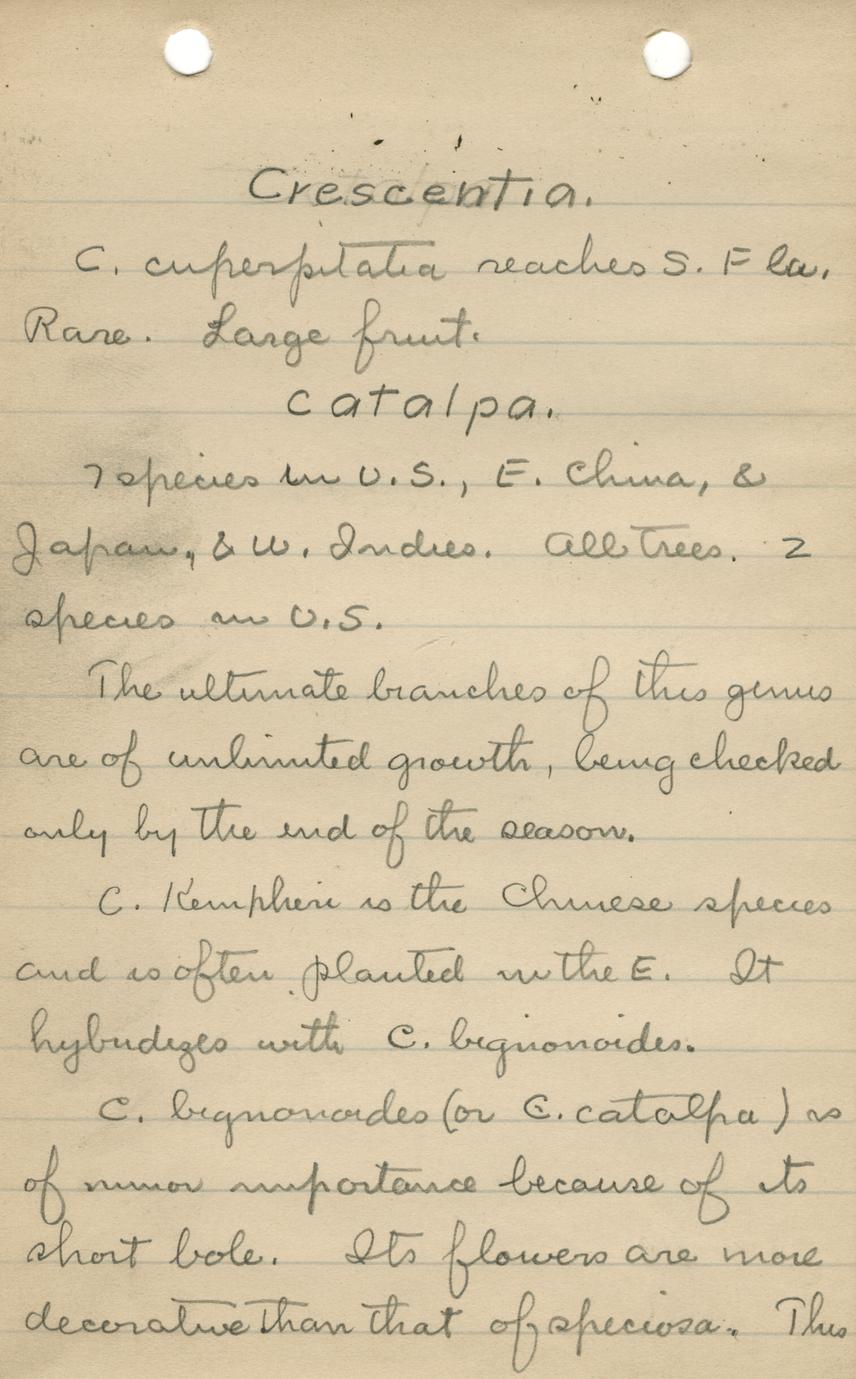 Crescentia.
C. cuperpitatia reaches S. Fla.
Rare. Large fruit.
Catalpa.
7 species in U.S., E. China, &
Japan, & W. Indies. All trees. 2
species in U.S.
The ultimate branches of this genus
are of unlimited growth, being checked
only by the end of the season.
C. Kempheri is the Chinese species
and is often planted in the E. It
hybridizes with C. bignonoides.
C. bignonoides (or C. catalpa) is
of minor importance because of its
short bole. Its flowers are more
decorative than that of speciosa. This